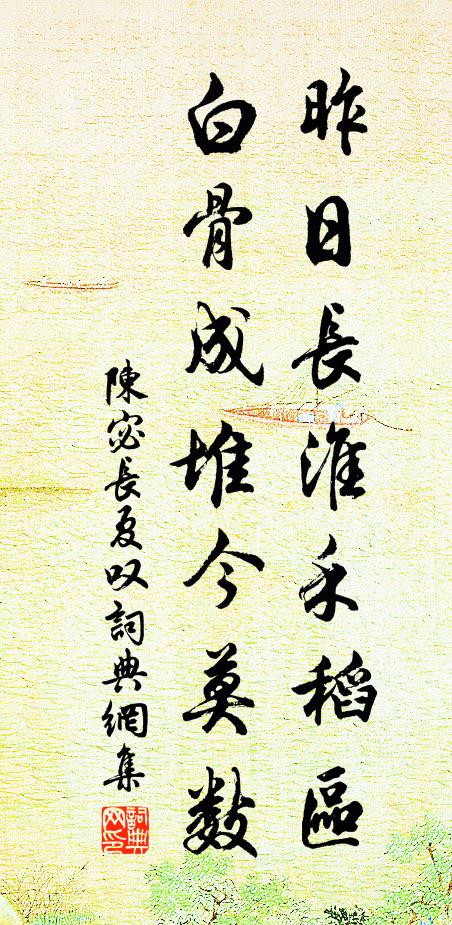 昨日長淮禾稻區
白骨成堆今莫數
陳宓長夏叹詞典網集
詞典網印